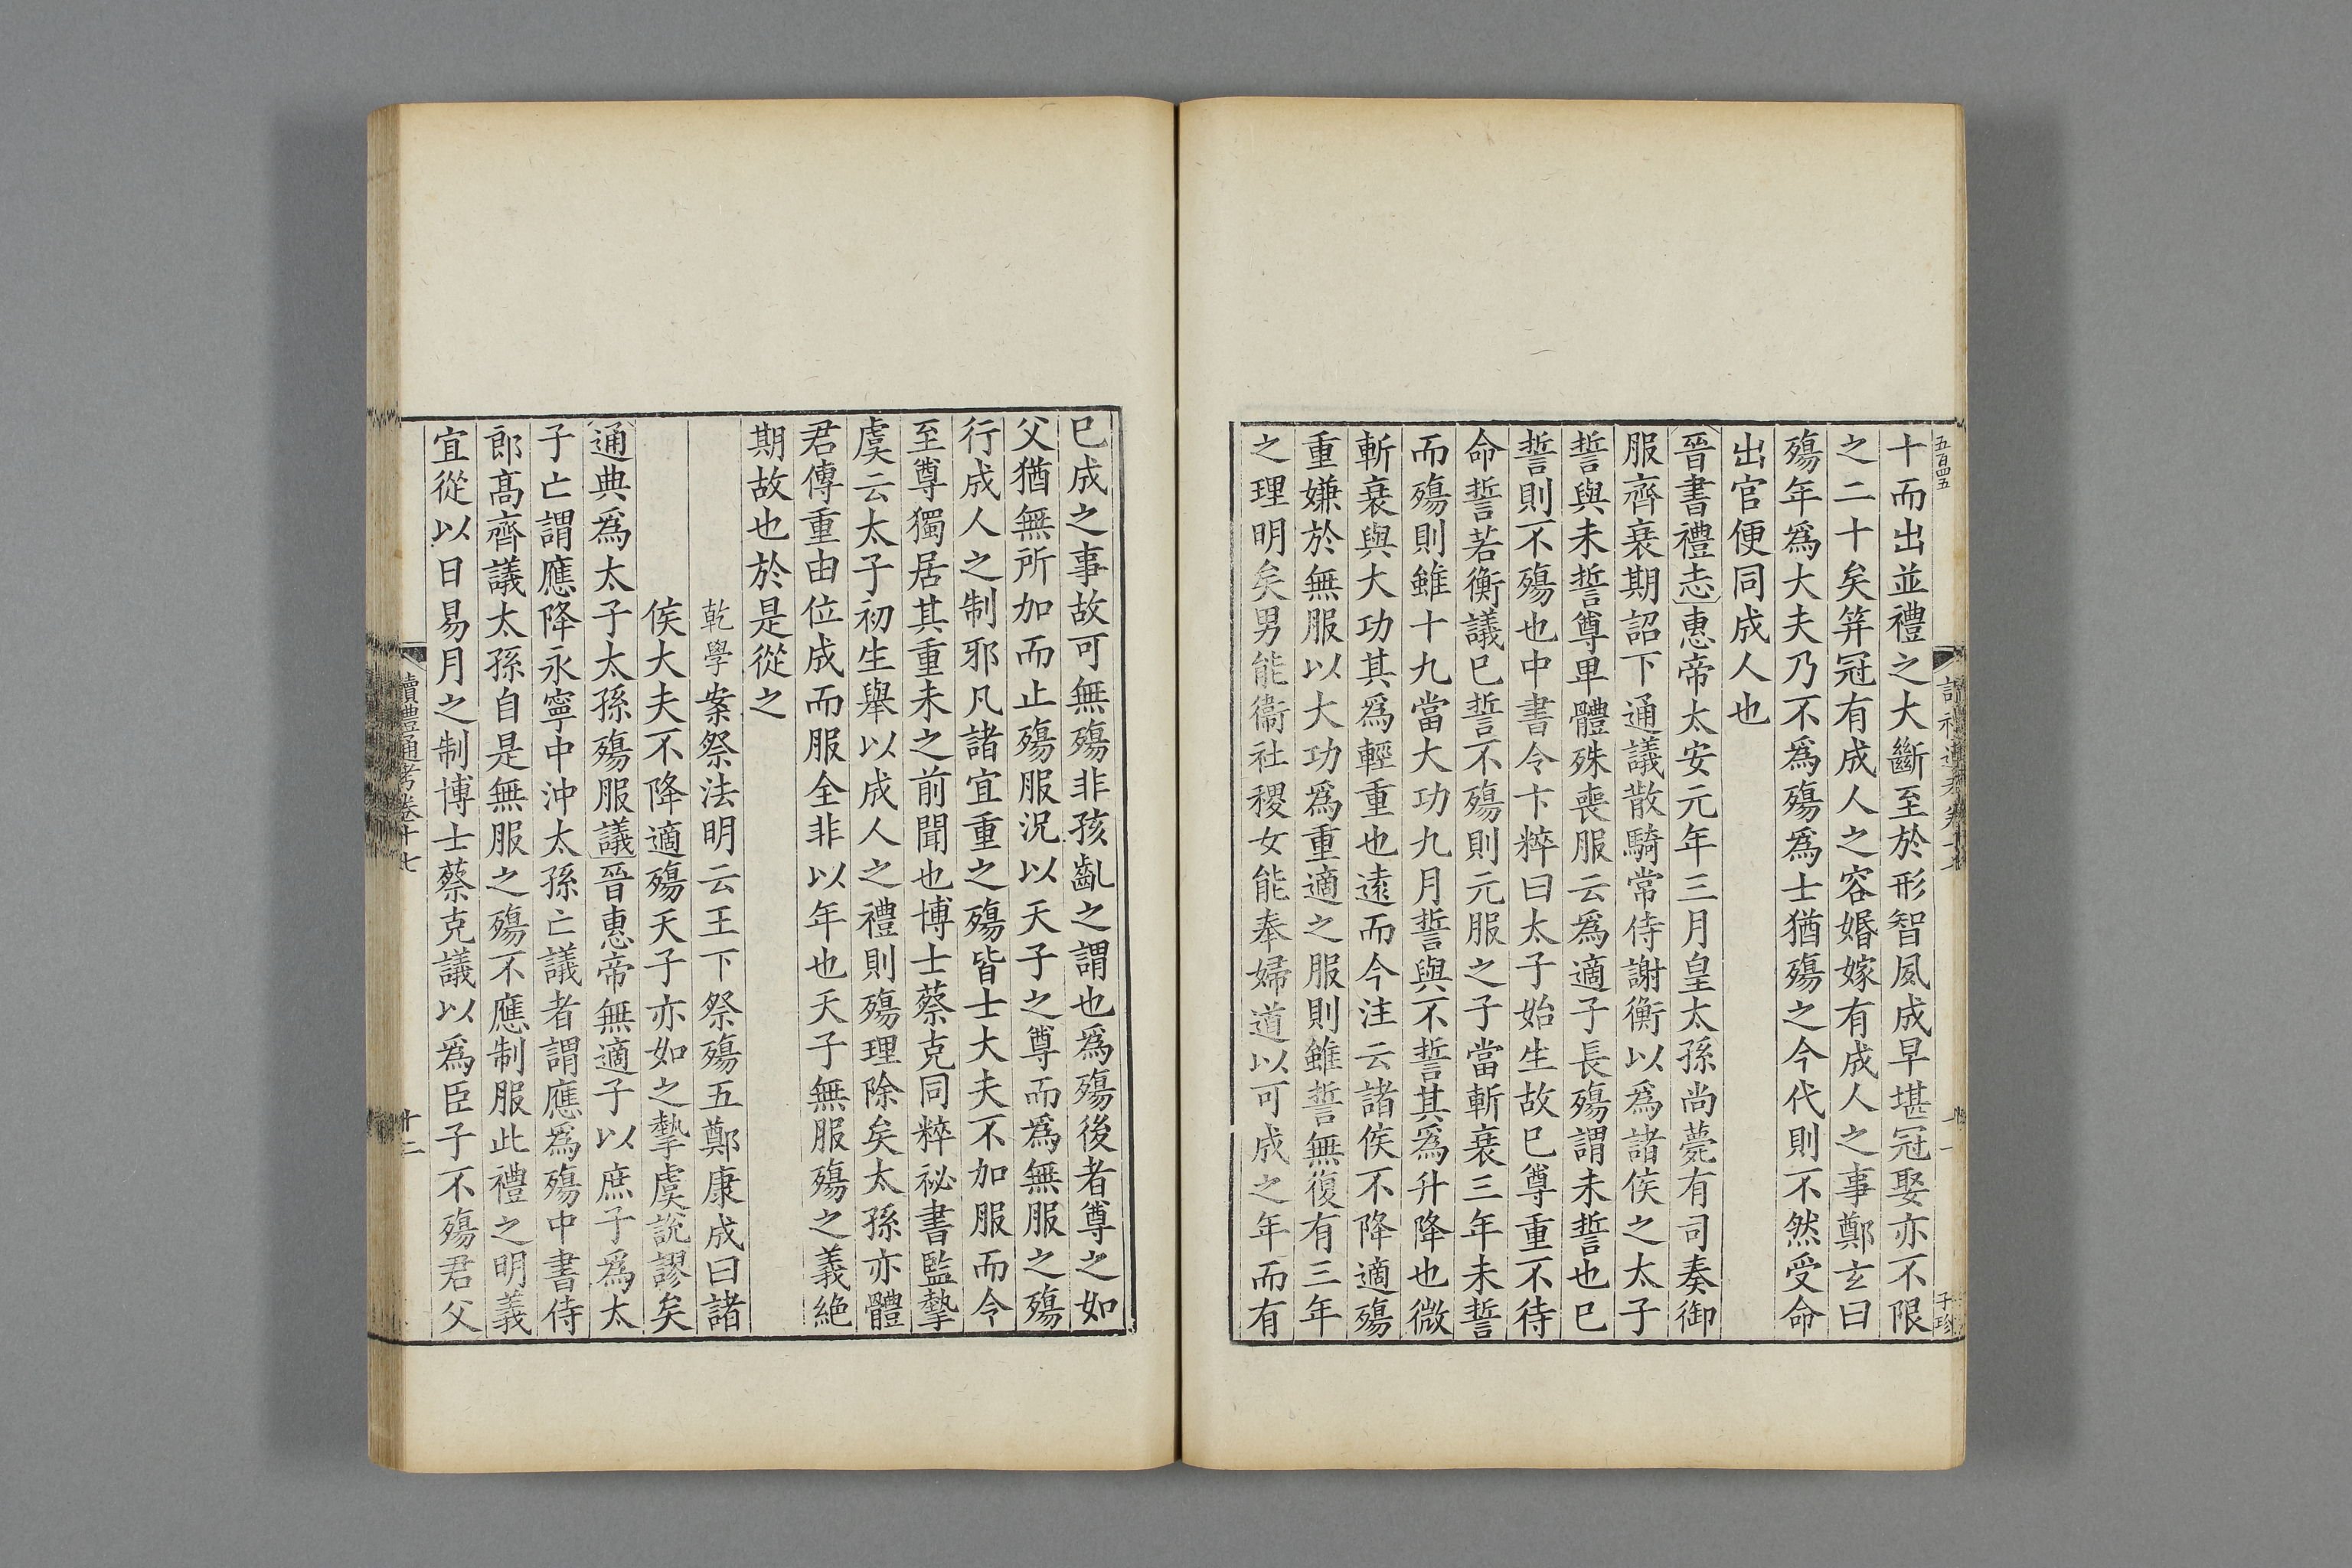 五百四五
子珍
十而出並禮之大斷至於形智夙成早堪冠娶亦不限
之二十矣笄冠有成人之容婚嫁有成人之事鄭玄曰
殤年爲大夫乃不爲殤爲士猶殤之今代則不然受命
出官便同成人也
晉書禮志惠帝太安元年三月皇太孫尚薨有司奏御
服齊衰期詔下通議散騎常侍謝衡以爲諸侯之太子
誓與未誓尊卑體殊喪服云爲適子長殤謂未誓也已
誓則不殤也中書令卞粹曰太子始生故已尊重不待
命誓若衡議已誓不殤則元服之子當斬衰三年未誓
而殤則雖十九當大功九月誓與不誓其爲升降也微
斬衰與大功其爲輕重也遠而今注云諸侯不降適殤
重嫌於無服以大功爲重適之服則雖誓無復有三年
之理明矣男能衞社稷女能奉婦道以可成之年而有
已成之事故可無殤非孩齔之謂也爲殤後者尊之如
父猶無所加而止殤服況以天子之尊而爲無服之殤
行成人之制邪凡諸宜重之殤皆士大夫不加服而令
至尊獨居其重未之前聞也博士蔡克同粹祕書監摯
虞云太子初生舉以成人之禮則殤理除矣太孫亦體
君傳重由位成而服全非以年也天子無服殤之義絕
期故也於是從之
乾學案祭法明云王下祭殤五鄭康成曰諸
侯大夫不降適殤天子亦如之摯虞說謬矣
通典爲太子太孫殤服議晉惠帝無適子以庶子爲太
子亡謂應降永寧中沖太孫亡議者謂應爲殤中書侍
郎高齊議太孫自是無服之殤不應制服此禮之明義
宜從以日易月之制博士蔡克議以爲臣子不殤君父
讀禮通考卷十七
十二